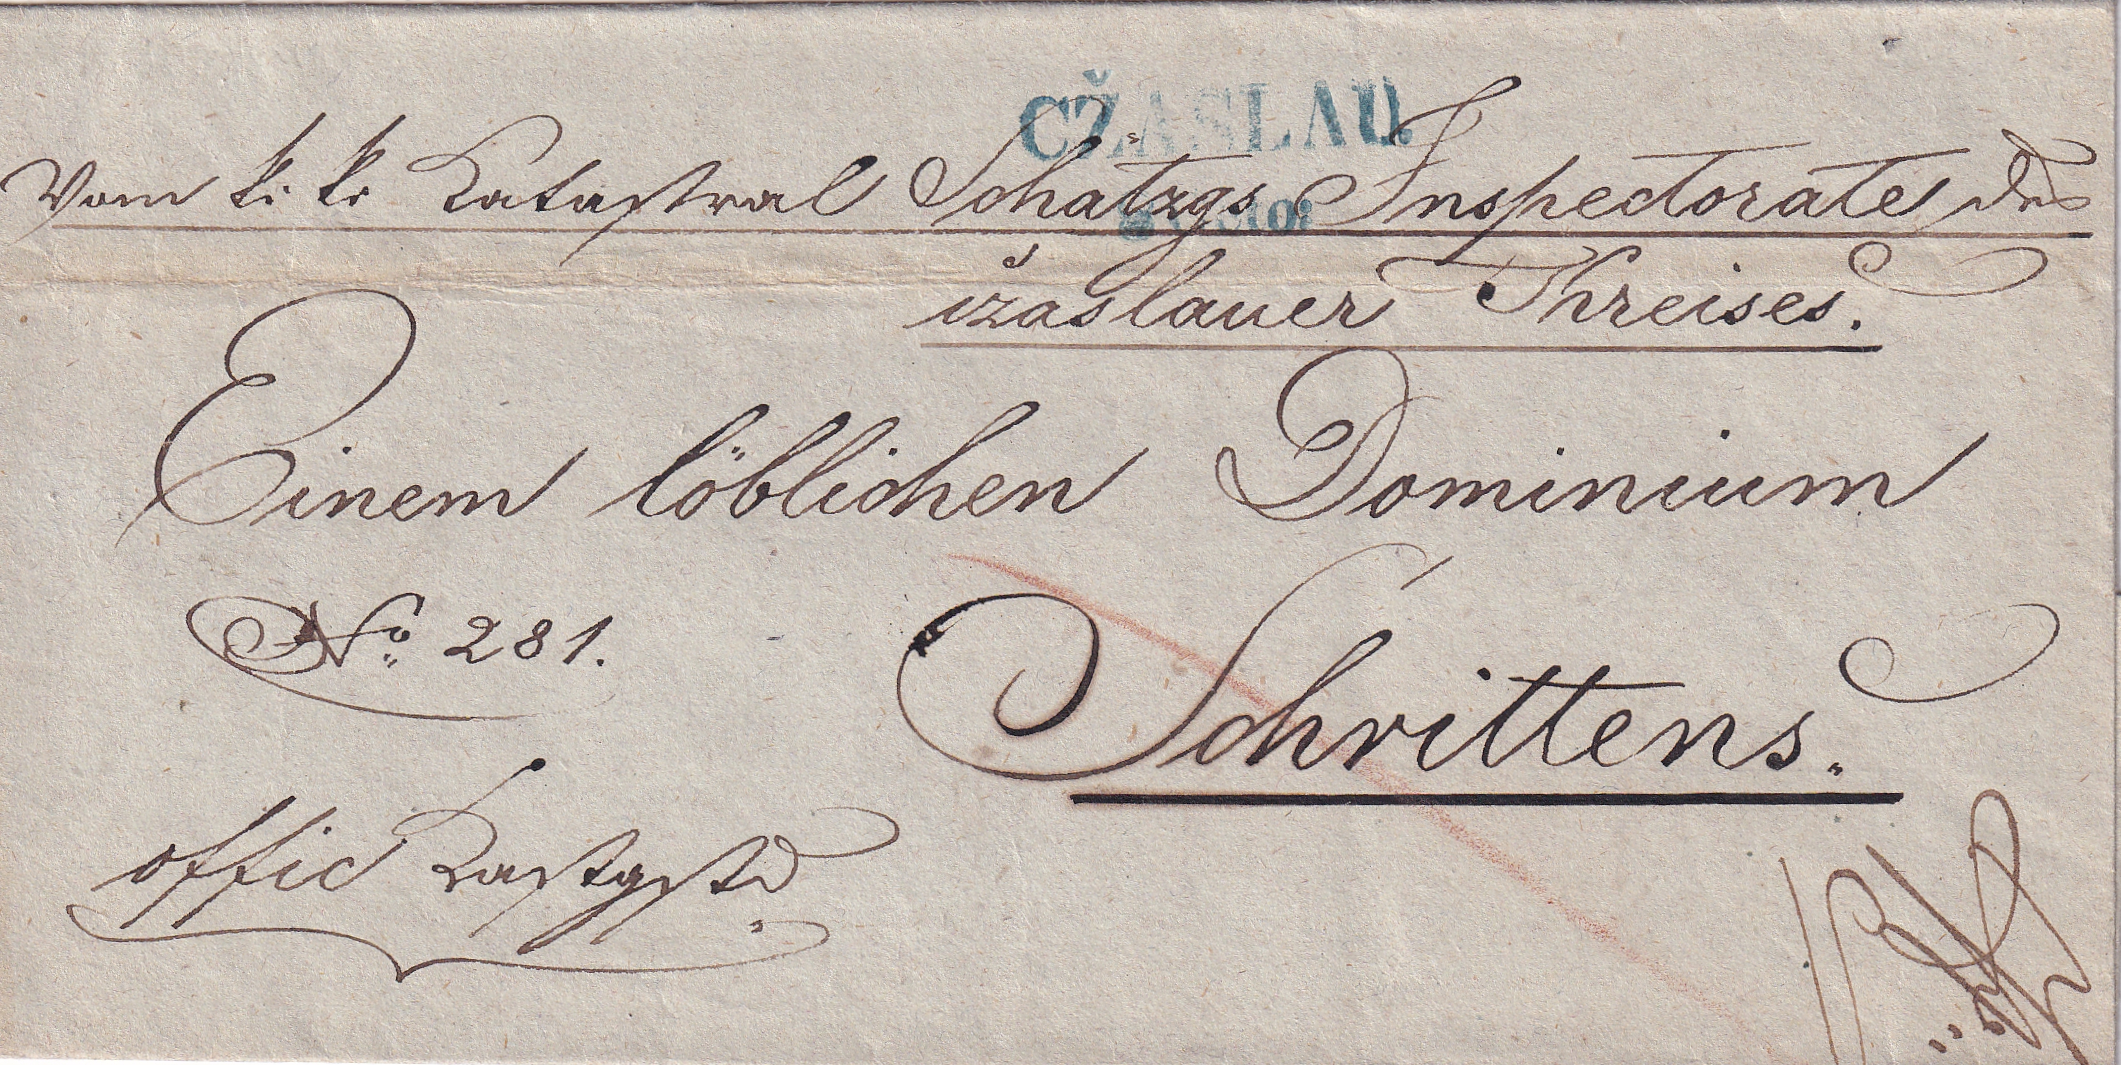 CŽASLAU.
Vom k: k: Katastral Schatzgs Inspectorate des
čzaslauer Khreises.
Einem löblichen Dominium
No. 281.
Schrittens.
offic